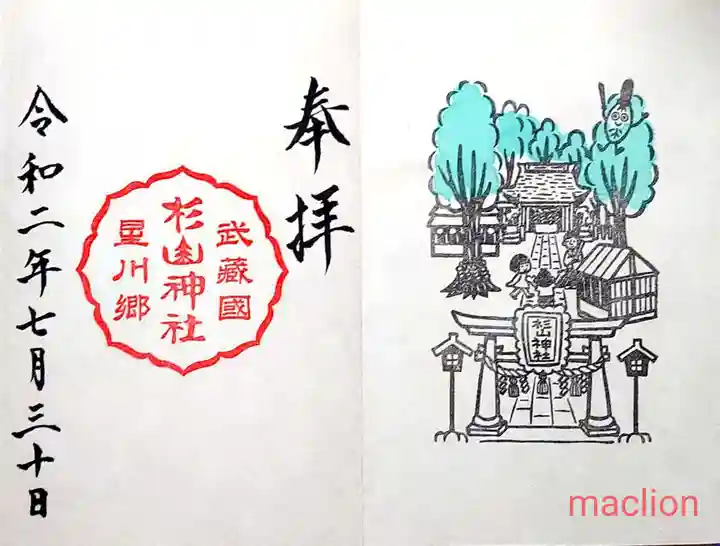 奉拝
武藏國
杉山神社
星川郷
令和二年七月三十日
杉山神社
maclion